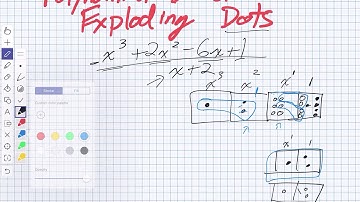 Exploding Dots
-x³+2x²-6x+1
x+2
x³ x² x¹ 1
x¹ 1